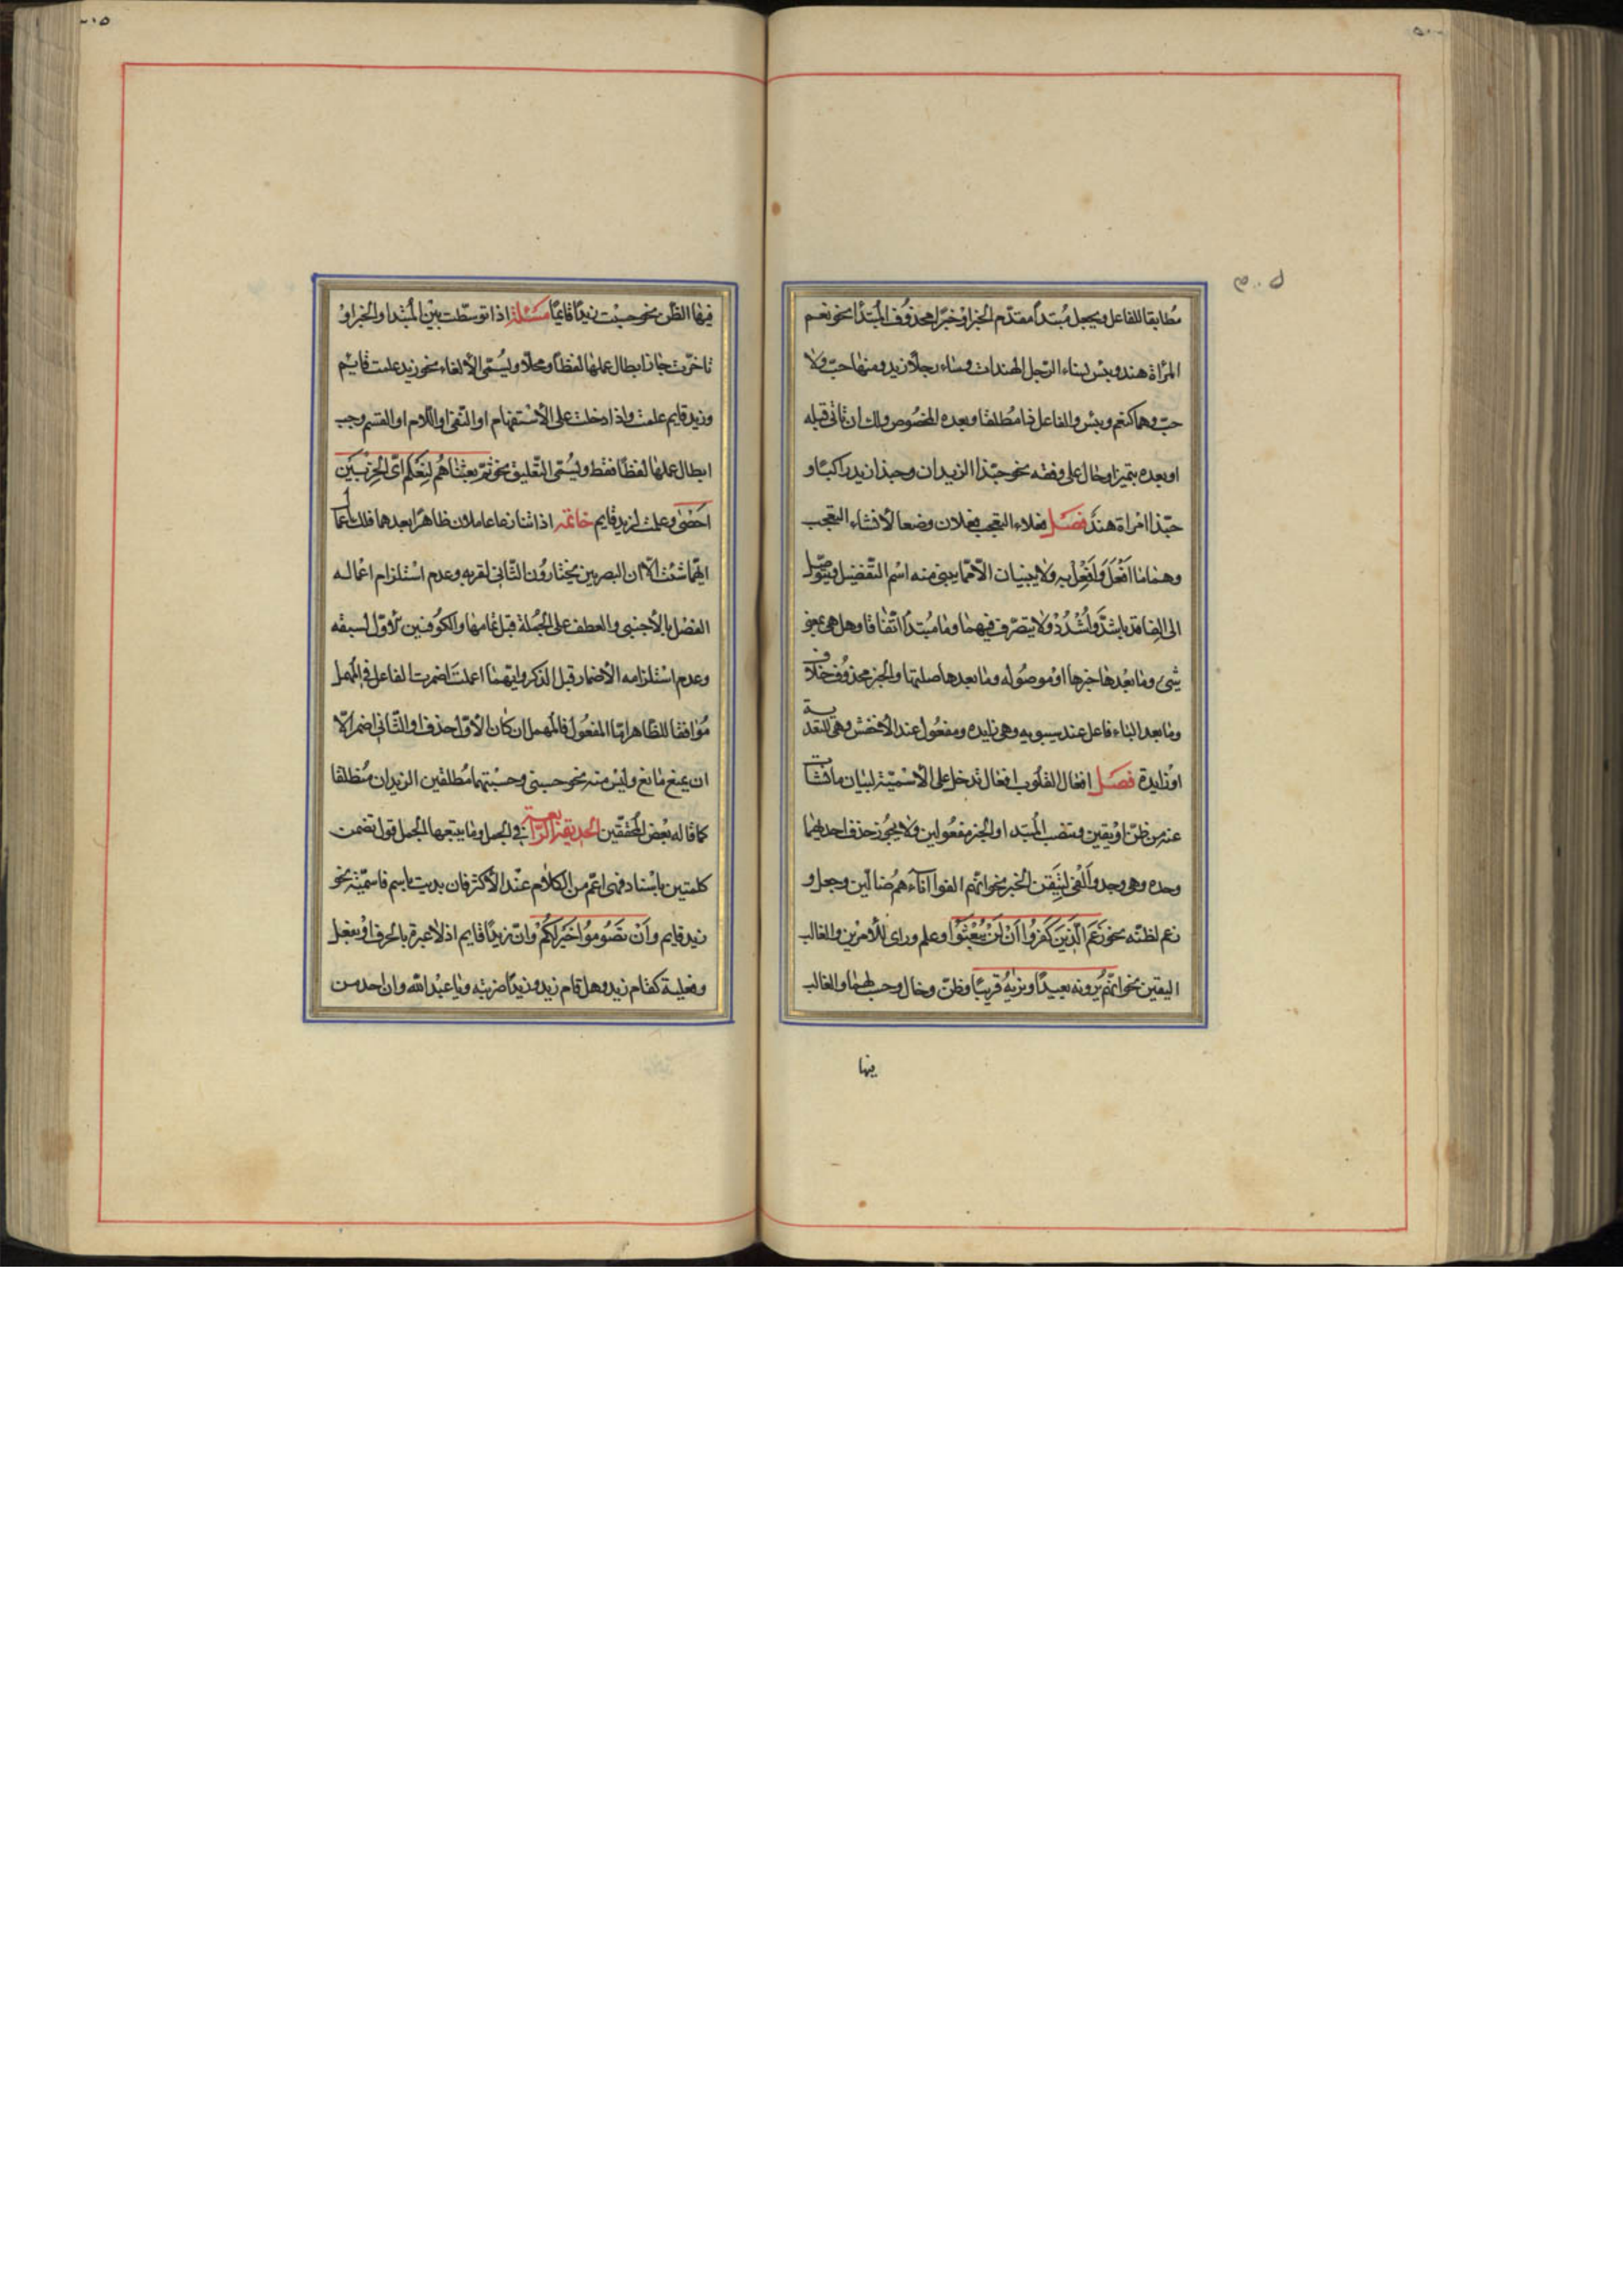 مطابقا للفاعل ويجعل مُبتدأ مقدّم الخبر اوْ خبرًا محذوُف المُبتدأ نحو نعم
المرْاة هند وبئس نساء الرّجل الهندات وساء رجلاً زيد ومنها حبّ ولا
حبّ وهما كنعم وبئس والفاعل ذا مُطلقا وبعده المخصُوص ولك ان تاتى قبله
او بعده بتميز او حال على وفقه نحو حبّذا الزيدان وحبذا زيد راكبًا و
حبّذا امْراة هندٌ فصَل فعلاء التعجب فعلان وضعا لأنشاء التعجب
وهما ما اَفْعَلَهُ وَاَفْعِلْ به ولا يبنيان الاّ ممّا يبنى منه اسْم التّفضيل ويتوَصّل
الى الفاقد باشدَّ واَشْدُدْ ولا يتصرّف فيهما وما مُبتدأ اتّفاقا وهل هى بمعنى
شئ وما بعْدها خبرها اوْ موصُوله وما بعدها صلتها والخبر محذوُف خلاف
وما بعد الباء فاعل عند سيبويه وهى زايده ومفعُول عند الأخفش وهى للتعدية
اوْ زايدة فصَل افعال القلُوب افعال تدخل على الاسْميّة لبيان ما نشأت
عنه من ظنّ اوْ يقين وتنصب المبتداء والخبر مفعُولين ولا يجُوز حذف احدهما
وحده وهى وجد وَاَلْفى لتيقن الخبر نحو انّهم الفوا آباءهم ضالّين وجعل و
زعم لظنّه نحو زَعَمَ الّذينَ كَفَرُوا اَنْ لَنْ يُبْعَثُوْا وعلم ورأى للأمريْن والغالب
اليقين نحو انّهم يَرَونه بعيدًا ونريهُ قريبًا وظنّ وخال وحسب لهما والغالب
فيها
فيها الظّن نحو حسبْت زيدًا قايمًا مسئلة اذا توسّطت بيْن المُبتدا والخبر اوْ
تاخرّت جاز ابطال عملها لفظاً ومحلاً ويُسمّى الألغاء نحو زيد علمت قايم
وزيد قايم علمت واذا دخلت على الأسْتفهام او النّفى او اللّام او القسم وجب
ابطال عملها لفظًا فقط ويُسمّى التّعليق نحو ثمّ بعثناهُم لِنَعْلَم اىّ الحِزْبَيْن
احَصْى وعلمت لزيد قايم خاتمة اذا تنازعا عاملان ظاهرًا بعدهما فلك اعمال
ايّهما شئت الاّ ان البصريين يختاروُن الثّانى لقربه وعدم اسْتلزام اعماله
الفصْل بالأجنبى والعطف على الجُملة قبل تمامها والكوُفيين الأوّل لسبقه
وعدم اسْتلزامه الأضمار قبل الذكر وايّهما اعملتَ اضمرت الفاعل فى المُهمل
مُوافقا للظّاهر امّا المفعُول فالمُهمل ان كان الأوّل حذف او الثّانى اضمر الاّ
ان يمنع مانع وليْس منه نحو حسبنى وحسبْتهما مُطلقين الزيدان مُنطلقا
كما قاله بعْض المُحقّقين الحديقة الرّابعة فى الجمل وما يتبعها الجمل قول تضمن
كلمتين باسْناد فهى اعمّ من الكلام عنْد الأكثر فان بديت باسم فاسميّة نحو
زيد قايم وأَنْ تصَوُموُا خَيْر لكمْ وانّ زيدًا قايم اذ لا عبرة بالحرف اوْ بفعْل
وفعلية كقام زيد وهل قام زيد وزيدًا ضربته ويا عبْد اللّه وان احد من